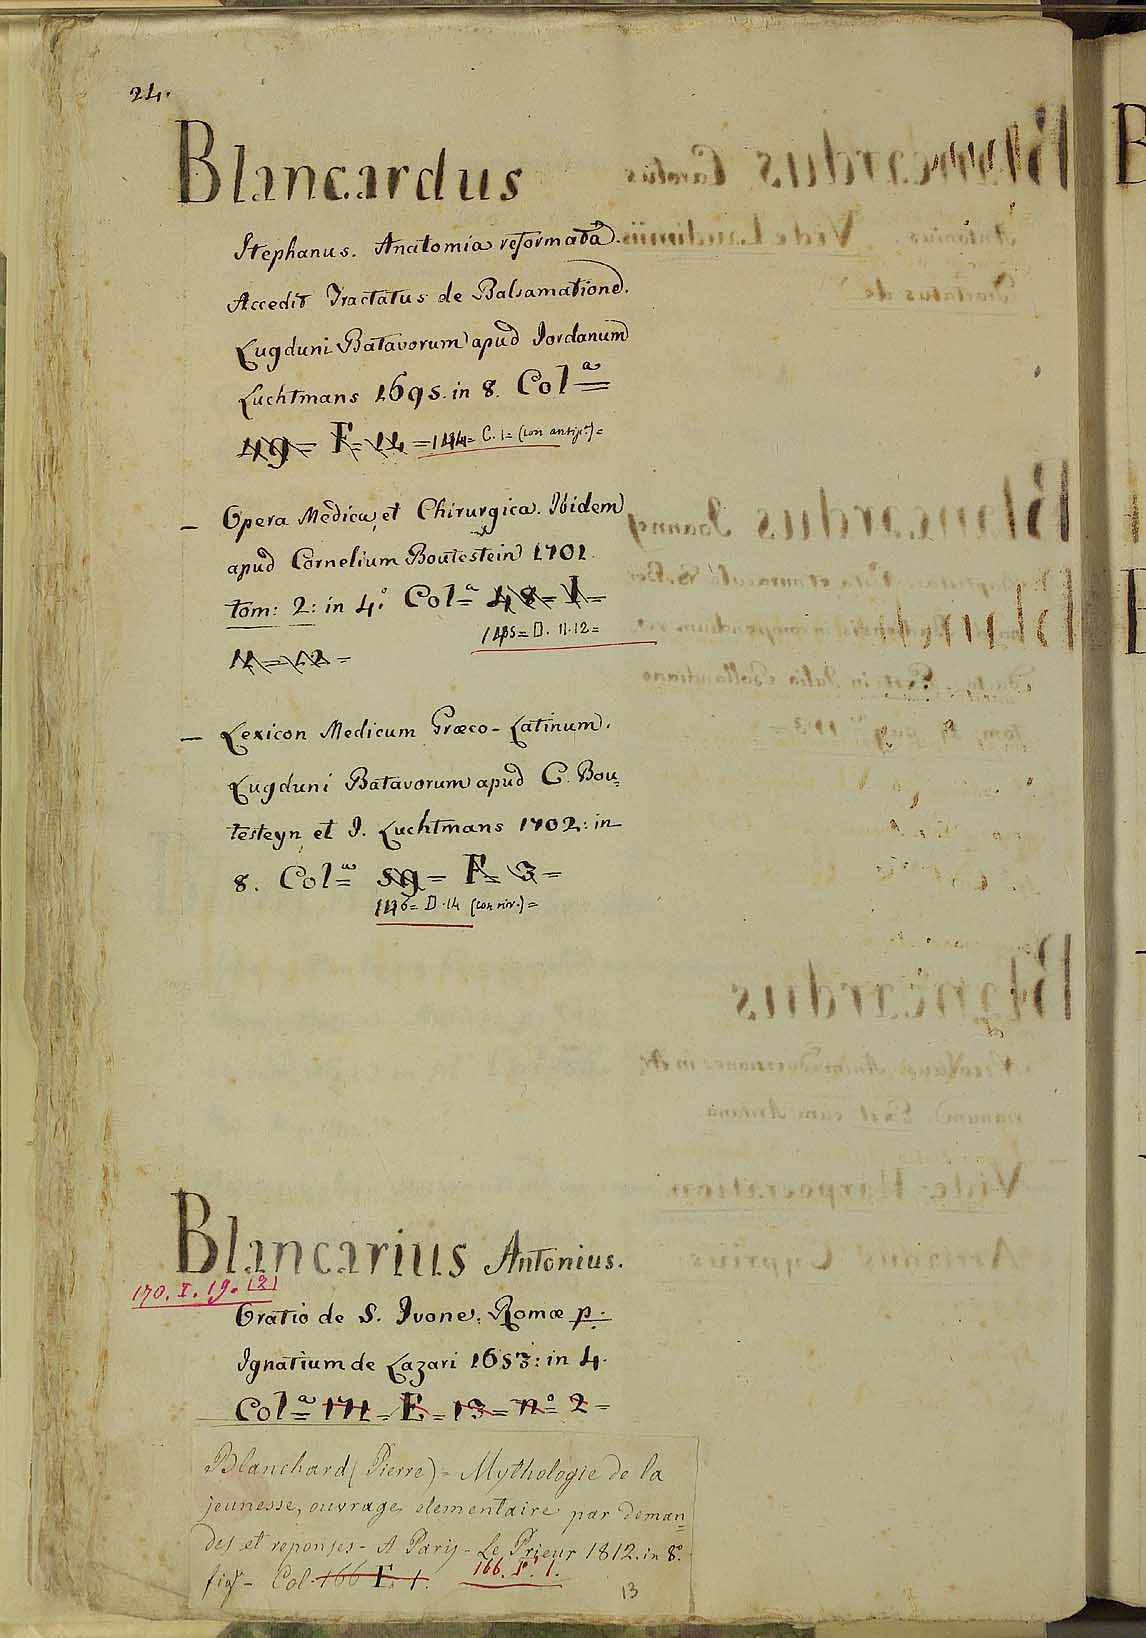 24.
Blancardus
Stephanus. Anatomia reformata.
Accedit Tractatus de Balsamatione.
Lugduni Batavorum apud Iordanum
Luchtmans 1695. in 8. Col.ª =
49 = F = 14 = 144 = C. 1 = (con antip.)=
– Opera Medica, et Chirurgica. Ibidem
apud Cornelium Boutestein 1701.
tom: 2: in 4.º Colª = 48 = I =
145 = D. 11.12 =
11 = 12 =
– Lexicon Medicum Græco-Latinum.
Lugduni Batavorum apud C. Bou=
testeyn, et I. Luchtmans 1702: in
8. Colª = 59 = F = 3 =
146 = D. 14 (con riv.) =
Blancarius Antonius.
170. I. 19. (2)
Oratio de S. Ivone. Romæ p.
Ignatium de Lazari 1653: in 4.
Colª = 171 = E = 13 = nº = 2 =
Blanchard (Pierre) = Mythologie de la
jeunesse, ouvrage elementaire par deman=
des et reponses - A Paris - Le Prieur 1812. in 8º.
figº - Col. 166 F. 1. 166. F. 1.
13